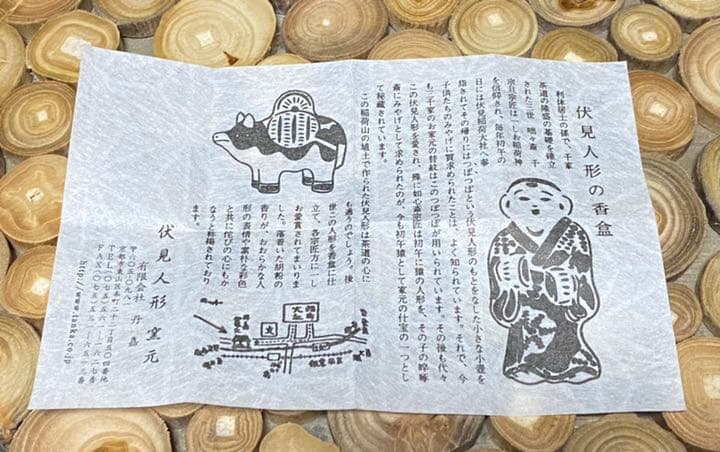 伏見人形の香盒
利休居士の孫で、千家
茶道の隆盛の基礎を確立
された三世 咄々斎 千
宗旦宗匠は一しお稲荷神
を信仰され、毎年初午の
日には伏見稲荷大社へ参
詣されてその帰りにはつぼつぼという伏見人形のもとをなした小さな小壺を
子供たちのみやげに買求められたことは、よく知られています。それで、今
も三千家のお家元の替紋はこのつぼつぼが用いられています。その後も代々
この伏見人形を愛され、殊に如心斎宗匠は初午に猿の人形を、その子の啐啄
斎にみやげとして求められたのが、今も初午猿として家元の什宝の一つとし
て秘蔵されています。
この稲荷山の埴土で作られた伏見人形は茶道の心に
も通うのでしょう。後
世この人形を香盒に仕
立て、各宗匠方に一し
お愛賞されてまいりま
した。落着いた胡粉の
香りが、おおらかな人
形の表情や素朴な彩色
と共に佗びの心にもか
なうと称揚されており
ます。
伏見人形窯元
有限会社 丹嘉
〒六〇五-〇九八一
京都市東山区本町二十二丁目五〇四番地
TEL〇七五-五六一-一六二七番
FAX〇七五-五三一-六五一三番
http://www.tanka.co.jp